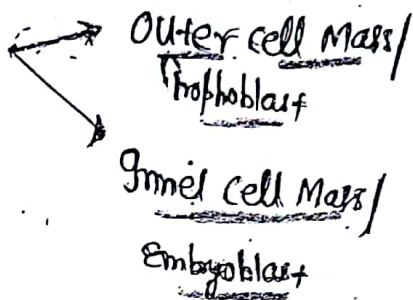 Outer cell Mass/
Trophoblast
Inner cell Mass/
Embryoblast